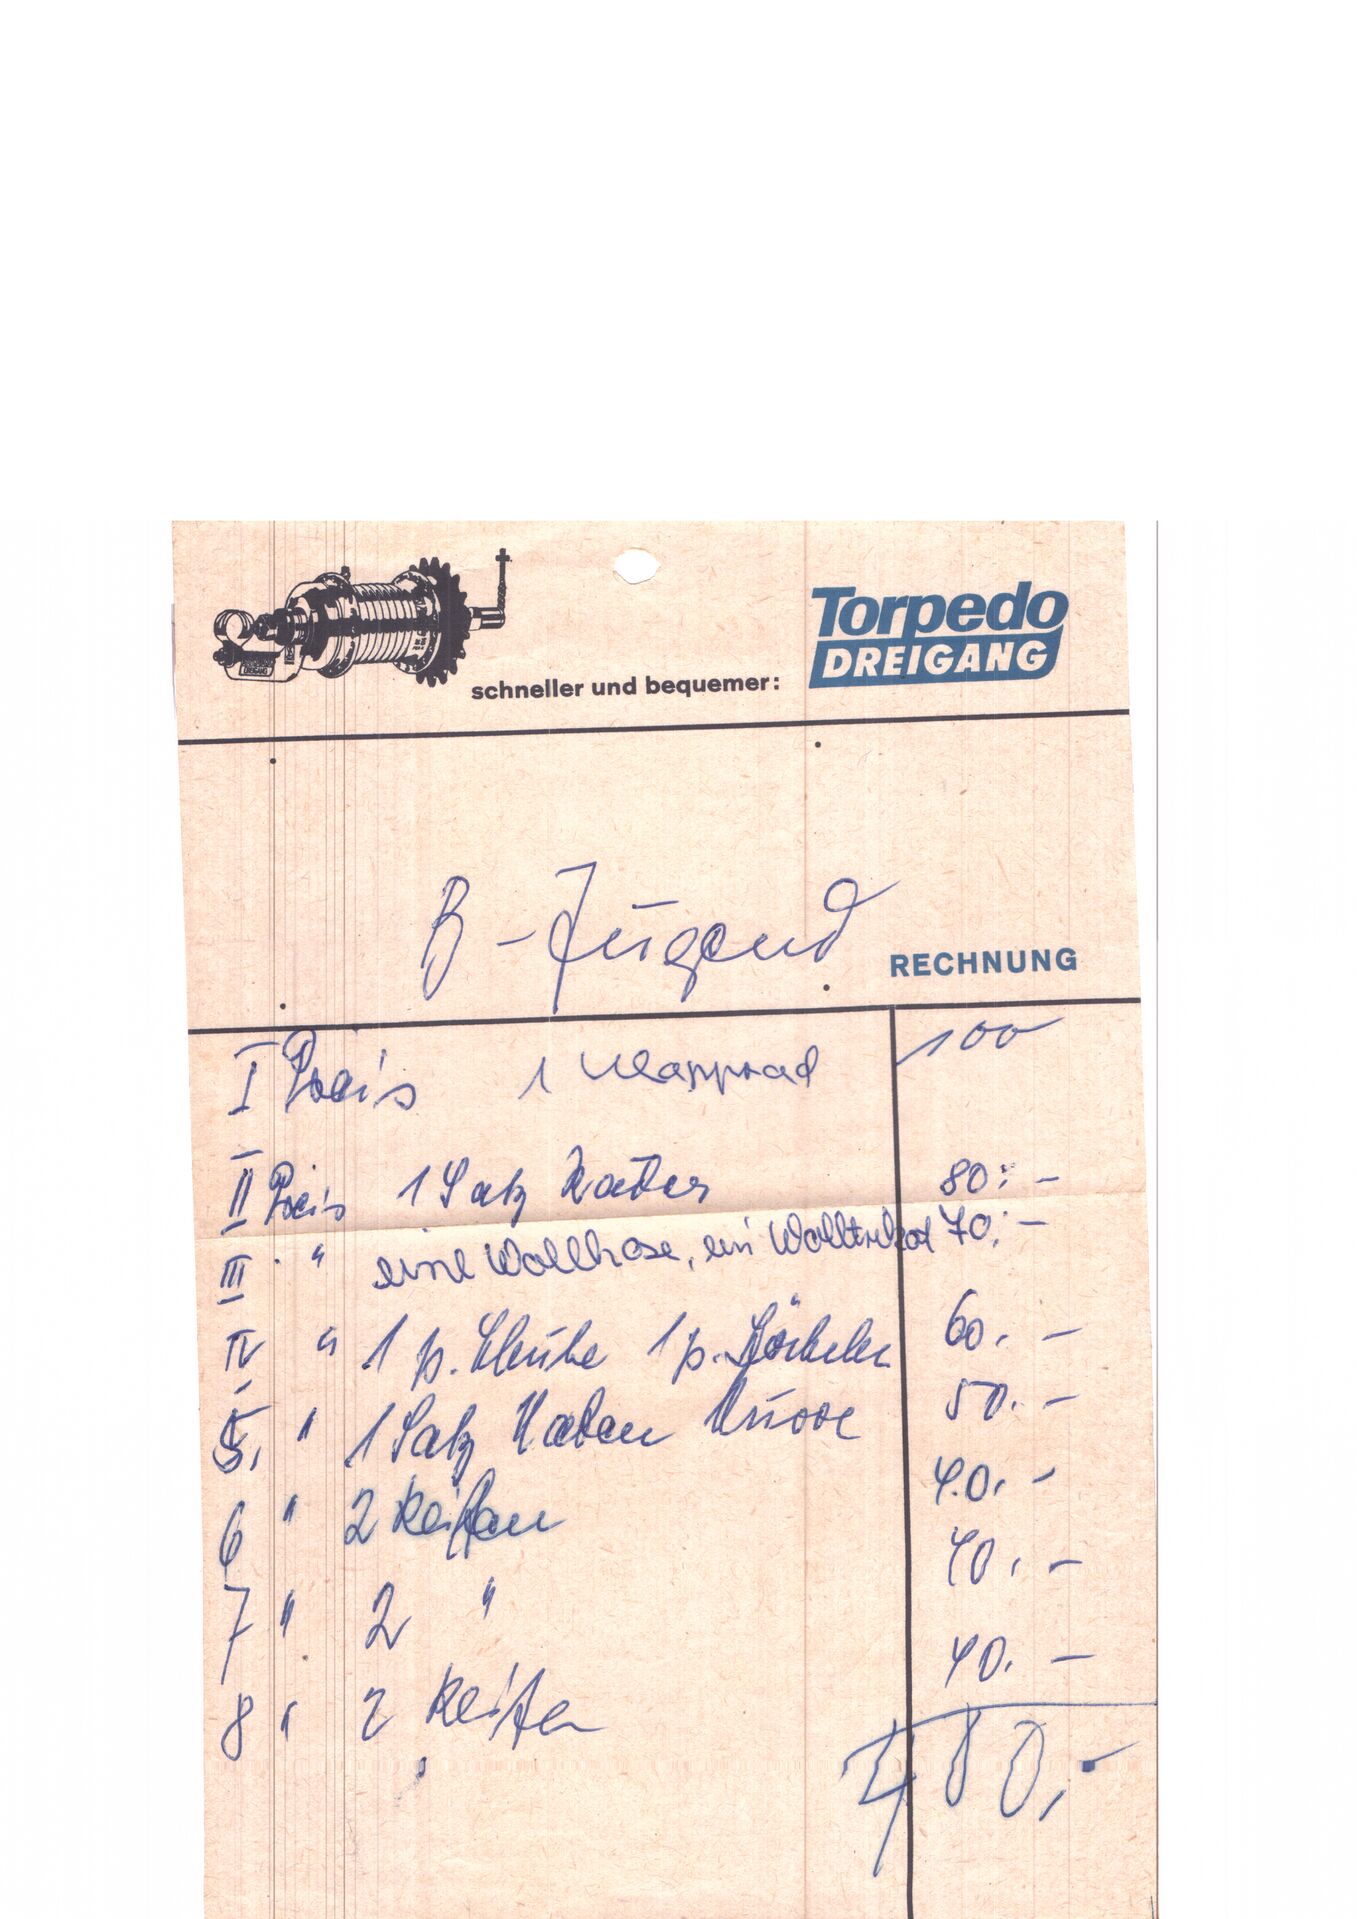 schneller und bequemer:
Torpedo
DREIGANG
B - Jugend
RECHNUNG
I Preis 1 Klapprad 100
II Preis 1 Satz Räder 80.-
III " " eine Wollhose, ein Wolltrikot 70.-
IV " 1 p. Schuhe 1 p. 60.-
5. " 1 Satz 50.-
6 " 2 Reifen 40.-
7 " 2 " 40.-
8 " 2 Reifen 40.-
480,-